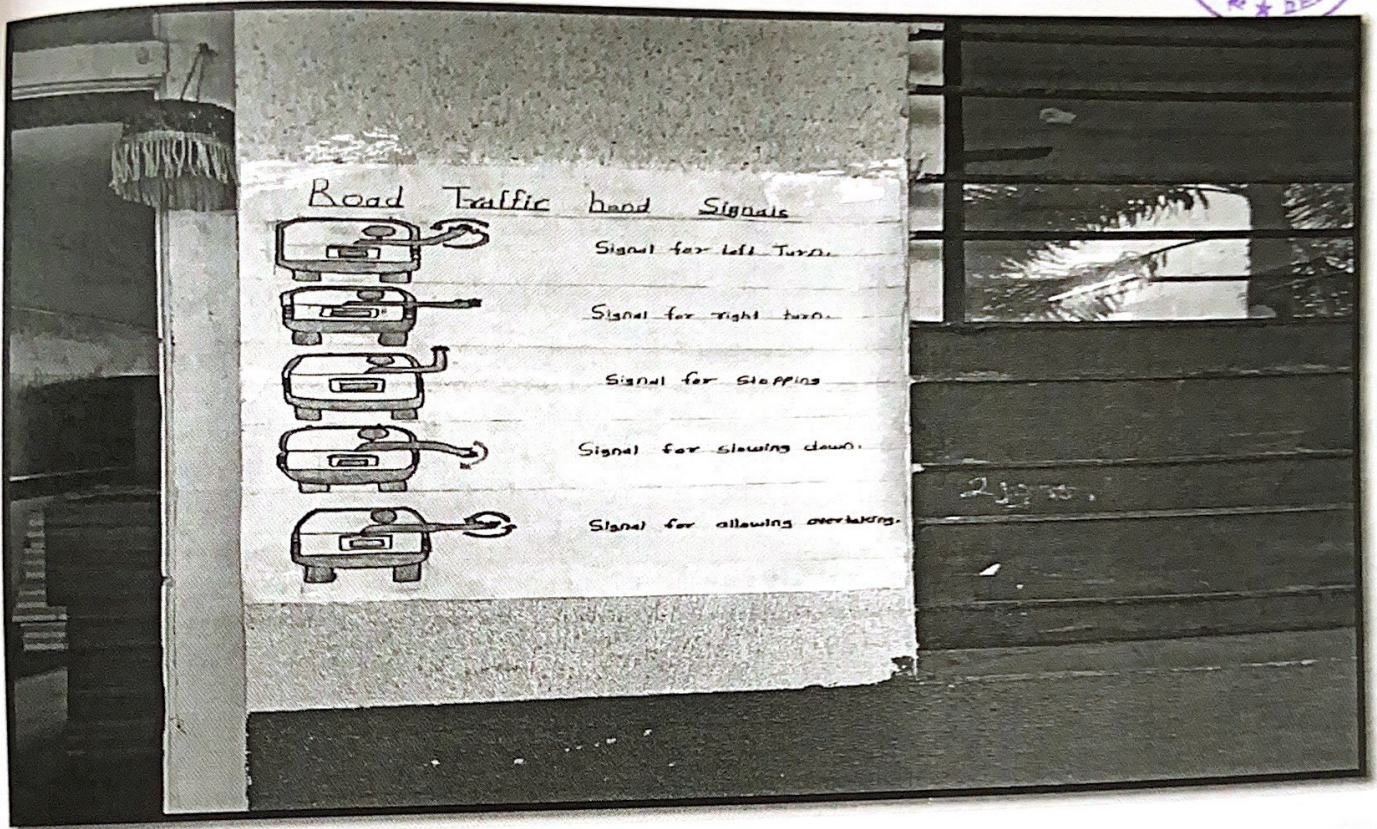 Road Traffic hand Signals
Signal for Left Turn.
Signal for right turn.
Signal for Stopping
Signal for slowing down.
Signal for allowing overtaking.